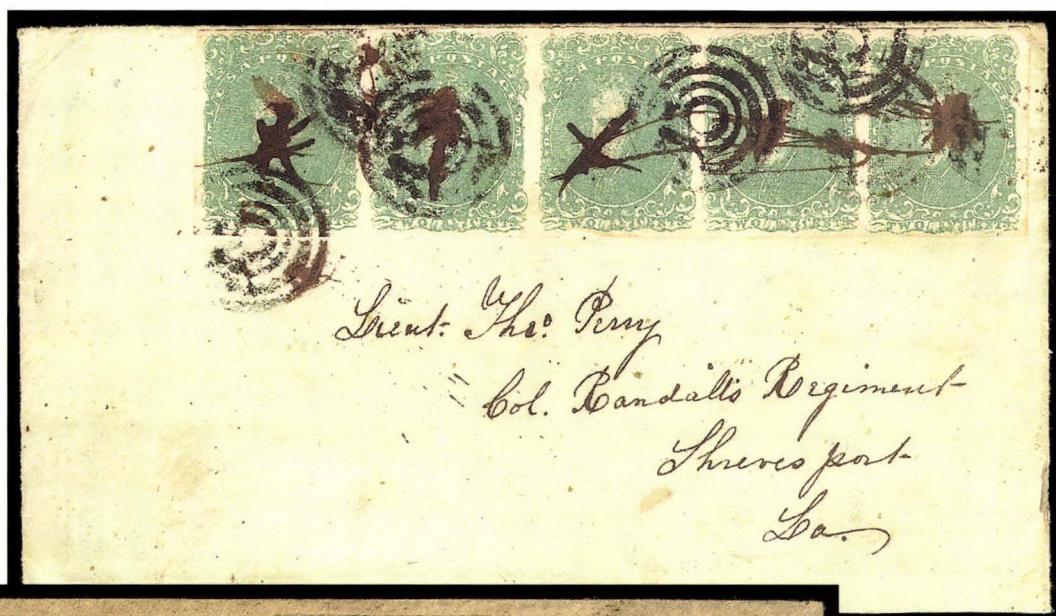 C S A POSTAGE
TWO CENTS
TWO CENTS
TWO CENTS
TWO CENTS
TWO CENTS
Lieut. Thos. Perry
Col. Randall's Regiment
Shrevesport
La.